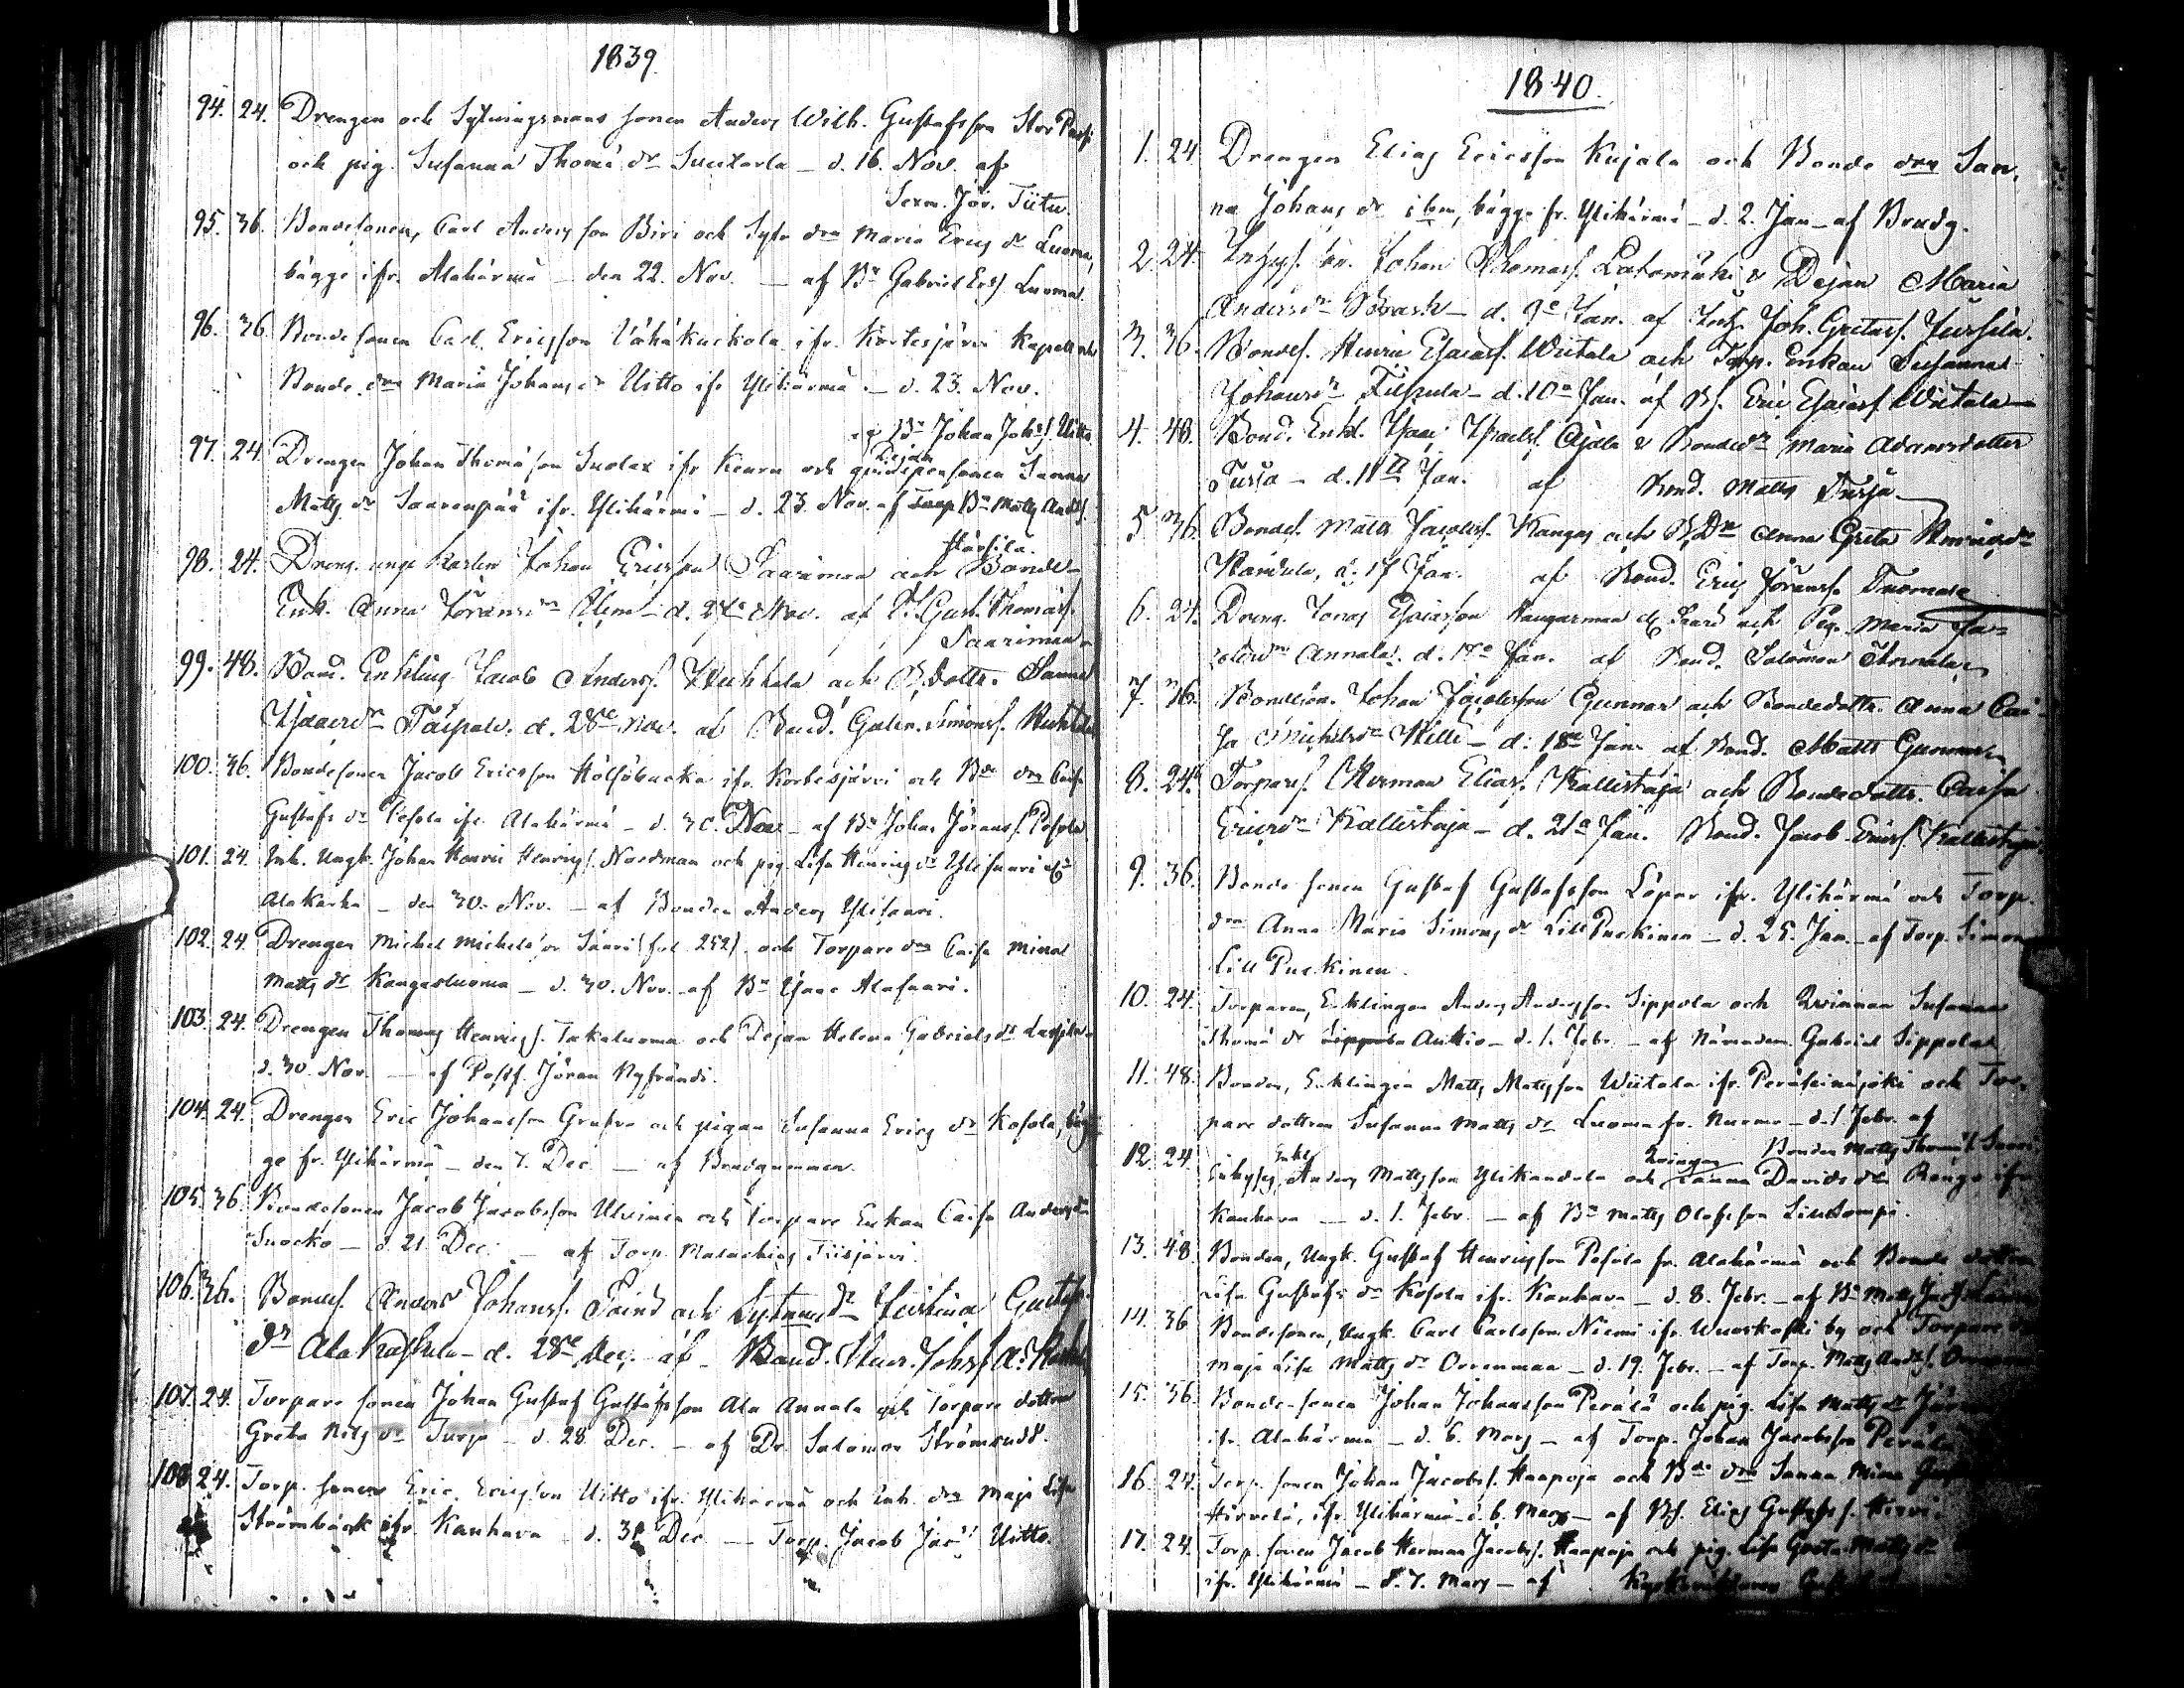 1839.
94. 24. Drengen och Sytningsmans sonen Anders Wilh. Gustafsson Stor Passi
och pig. Susanna Thomæ dr Luutarla - d. 16. Nov. af
Sexm. Jör. Tiitu.
95. 36. Bondesonen, Carl Andersson Biri och Sytn. dren Maria Erics dr Luoma,
bägge ifr. Alahärmä - den 22. Nov. - af Bn Gabriel Ers. Luoma.
96. 36. Bondesonen Carl Ericsson Vähäkuckola ifr. Kortesjärvi Kapell och
Bonde dren Maria Johans dr Uitto ifr Ylihärmä. - d. 23. Nov.
af Bn Johan Joh.s. Uitto
97. 24. Drengen Johan Thomæson Luolax ifr Keuru och Dejan Sanna
Matts dr Saarenpää ifr. Ylihärmä - d. 23. Nov. af Bn Matts And.s.
Härsilä.
98. 24. Dreng. unge Karlen Johan Ericsson Saarimaa och Bonde-
Enk. Anna Göransdr - d. 24 Nov. af Gust. Thomæs.
Saarimaa.
99. 48. Bond. Enkling Jacob Anderss. Huhtala och B.dottr. Sanna
Isaacsdr Taipale. d. 28de Nov. af Bond. Gabr. Simonss. Huhtala
100. 36. Bondesonen Jacob Ericsson Hölsöbacka ifr. Kortesjärvi och Bde dren Caisa
Gustafs dr Pesola ifr. Alahärmä - d. 30. Nov - af Bn Johan Jöranss. Pesola
101. 24. Inh. Ungk. Johan Henric Henrics. Nordman och pig. Lisa Henrics dr Ylisaari
Alakarhu - den 30. Nov. - af Bonden Anders Ylisaari.
102. 24. Drengen Michel Michelsson Saari (fol. 252). och Torpare dren Caisa Mina
Matts dr Kangasluoma - d. 30. Nov. af Bn Isaac Alasaari.
103. 24. Drengen Thomas Henrics. Takaluoma och Dejan Helena Gabriels dr Lassila
d. 30. Nov. - af Postf. Jöran Nyfründi.
104. 24. Drengen Eric Johansson Grufva och pigan Susanna Erics dr Kosola, bäg-
ge fr. Ylihärmä - den 7. Dec. - af Brudgummen.
105. 36. Bondesonen Jacob Jacobsson Ulvinen och Torpare Enkan Caisa Anders dr
Luocko - d. 21 Dec. - af Torp. Malachias Tiisjärvi.
106. 36. Bondes. Anders Johanss. Paind och Sytnmsdr Justina Gustafs
dr Ala Kaskula - d. 28de Dec. af - Bond. Joh.s.
107. 24. Torpare sonen Johan Gustaf Gustafsson Ala Annala och Torpare dottren
Greta Nils dr Turja - d. 28 Dec. - af Dr. Salomon Strömrudd.
108. 24. Torp. sonen Eric Ericsson Uitto ifr. Ylihärmä och Inh. dren Maja Lisa
Strömbäck ifr. Kauhava d. 31 Dec. - Torp. Jacob Jac.s. Uitto.
1840.
1. 24 Drengen Elias Ericsson Kujala och Bonde dren San-
na Johans dr ibm, bägge fr. Ylihärmä - d. 2. Jan - af Brudg.
2. 24. Johan Thomæs. Latomäki & Dejan Maria
Andersdr Brask - d. 9e Jan. af Joh. Gretass. Jussila.
3. 36. Bondes. Henric Esaiass. Wiitala och Torp. Enkan Susanna
Johansdr - d. 10e Jan. af Bs. Eric Esaiass. Wiitala
4. 48. Bond. Enkl. Isaac Israelss. Ojala & Bondedr Maria Adamsdotter
Turja - d. 11te Jan. af Bond. Matts Turja.
5 36. Bondes. Matts Jacobss. Kangas och B.Dr Anna Greta Henricsdr
Härdula, d. 17 Jan. af Bond. Eric Jöranss. Tuomela
6. 24. Dreng. Jonas Esaiasson Kangasmaa och Pig. Maria Ja-
cobsdr Annala. d. 17e Jan. af Bond. Salomon Annala.
7. 36. Bondeson. Johan Jacobsson Gunnar och Bondedottr. Anna Cai-
sa Michelsdr Hilli - d. 18e Jan. af Bond. Matts Gunnar
8. 24. Torpares. Herman Eliass. Kallistaja och Bondedottr. Caisa
Ericsdr Kallistaja - d. 21a Jan. Bond. Jacob Ericss. Kallistaja.
9. 36. Bonde sonen Gustaf Gustafsson Löpar ifr. Ylihärmä och Torp.
dren Anna Maria Simons dr Lill Puckinen - d. 25. Jan. - af Torp. Simon
Lill Puckinen.
10. 24. Torparen, Enklingen Anders Andersson Sippola och Qvinnan Susanna
Thomæ dr Anttio - d. 1. Febr. - af Nämndem. Gabriel Sippola
11. 48. Bonden, Enklingen Matts Mattsson Wiitala ifr. Peräseinäjoki och Tor-
pare dottren Susanna Matts dr Luoma fr. Nurmo - d. 1 Febr. af
Bonden Matts Thomæs. Saari
12. 24 Inhyses Enkl. Anders Mattsson Ylikandola och Qvinnan Sanna Davids dr Rengo ifr
Kauhava - d. 1. Febr. - af Bn Matts Olofsson Liulompi.
13. 48 Bonden, Ungk. Gustaf Henricsson Pesola fr. Alahärmä och Bonde dottren
Lisa Gustafs dr Kosola ifr. Kauhava - d. 8. Febr. - af Bn Matts
14. 36 Bondesonen, Ungk. Carl Carlsson Niemi ifr. Wuoskoski by och Torpare
Maja Lisa Matts dr Orrenmaa - d. 19. Febr. - af Torp. Matts And.s.
15. 36. Bonde-sonen Johan Johansson Perälä och pig. Lisa Matts dr
ifr. Alahärmä - d. 6. Mars - af Torp. Johan Jacobsson Perälä
16. 24. Torp. sonen Johan Jacobs. Haapoja och Bde dren Sanna Mina
Hirvelä, ifr. Ylihärmä - d. 6. Mars - af Bs. Elias Gustafs s.
17. 24. Torp. sonen Jacob Herman Jacobs. Haapoja och pig. Lisa Greta Matts dr
ifr. Ylihärmä - d. 7. Mars - af